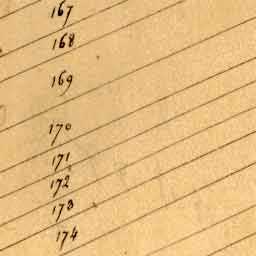 167
168
169
170
171
172
173
174